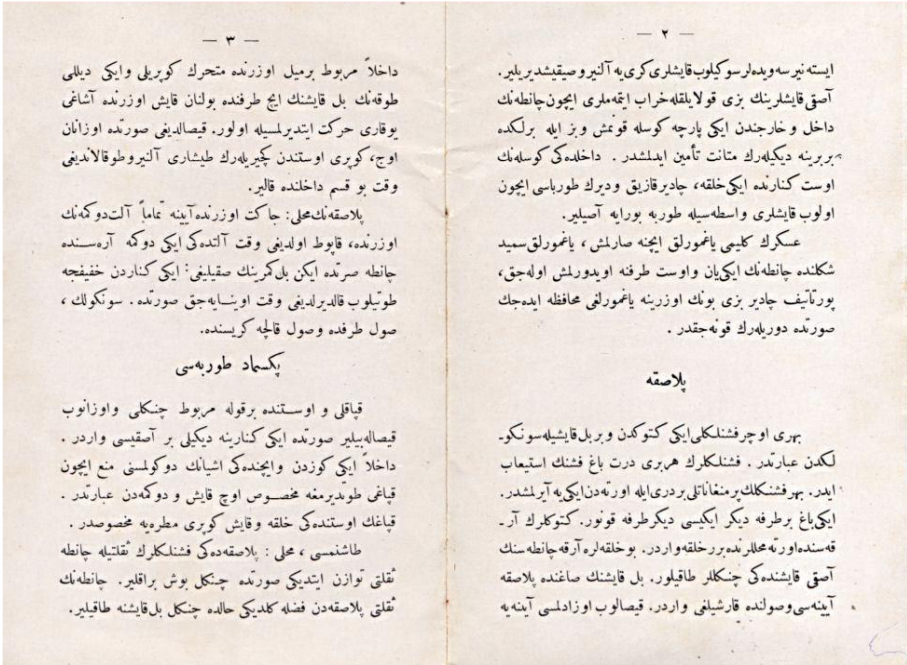 — ٢ —
ایسته نیرسه ویده لر سوکیلوب قایشلری کری یه آلنیر وصیقیشدیریلیر.
آصقی قایشلرینك بزی قولایلقله خراب ایتمه ملری ایچون چانطه نك
داخل و خارجندن ایکی پارچه کوسله قونمش وبز ایله برلکده
بربرینه دیکیله رك متانت تأمین ایدلمشدر . داخلده کی کوسله نك
اوست کنارنده ایکی خلقه، چادیر قازیق ودیرك طورباسی ایچون
اولوب قایشلری واسطه سیله طوربه بورایه آصیلیر.
عسکرك کلیمی یاغمورلق ایچنه صارلمش ، یاغمورلق سمید
شکلنده چانطه نك ایکی یان واوست طرفنه اویدورلمش اوله جق،
پورتاتیف چادیر بزی بونك اوزرینه یاغمورلغی محافظه ایده جك
صورتده دوریله رك قونه جقدر .
پلاصقه
بهری اوچر فشنلکلی ایکی کتوکدن وبر بل قایشیله سونکو-
لکدن عبارتدر . فشنلکلرك هربری درت باغ فشنك استیعاب
ایدر. بهر فشنكلك پرمنغاناتلی بر دری ایله اورته دن ایکی یه آیرلمشدر.
ایکی باغ برطرفه دیگر ایکیسی دیگر طرفه قونور. کتوکلرك آر-
قه سنده اورته محللرنده برر خلقه واردر. بو خلقه لره آرقه چانطه سنك
آصقی قایشنده کی چنکللر طاقیلور. بل قایشنك صاغنده پلاصقه
آیینه سی وصولنده قارشیلغی واردر. قیصالوب اوزادلمسی آیینه یه
— ٣ —
داخلاً مربوط برمیل اوزرنده متحرك کوپریلی وایکی دیللی
طوقه نك بل قایشنك ایچ طرفنده بولنان قایش اوزرنده آشاغی
یوقاری حرکت ایتدیرلمسیله اولور. قیصالدیغی صورتده اوزانان
اوج، کوپری اوستندن کچیریله رك طیشاری آلنیر وطوقالاندیغی
وقت بو قسم داخلنده قالیر.
پلاصقه نك محلی: جاکت اوزرنده آیینه تماماً آلت دوکمه نك
اوزرنده، قاپوط اولدیغی وقت آلتده کی ایکی دوکمه آره سنده
چانطه صرتده ایکن بل کمرینك صقیلیغی: ایکی کناردن خفیفجه
طوتیلوب قالدیرلدیغی وقت اوینایه جق صورتده . سونکولك ،
صول طرفده وصول قالچه کریسنده.
پکسماد طوربه سی
قپاقلی و اوستنده برقوله مربوط چنکلی واوزانوب
قیصاله بیلیر صورتده ایکی کنارینه دیکیلی بر آصقیسی واردر .
داخلاً ایکی کوزدن وایچنده کی اشیانك دوکولمسنی منع ایچون
قپاغی طوبدیرمغه مخصوص اوچ قایش و دوکمه دن عبارتدر .
قپاغك اوستنده کی خلقه وقایش کوپری مطره یه مخصوصدر .
طاشنمسی ، محلی : پلاصقه ده کی فشنلکلرك ثقلتیله چانطه
ثقلتی توازن ایتدیکی صورتده چنکل بوش براقلیر. چانطه نك
ثقلتی پلاصقه دن فضله کلدیکی حالده چنکل بل قایشنه طاقیلیر.